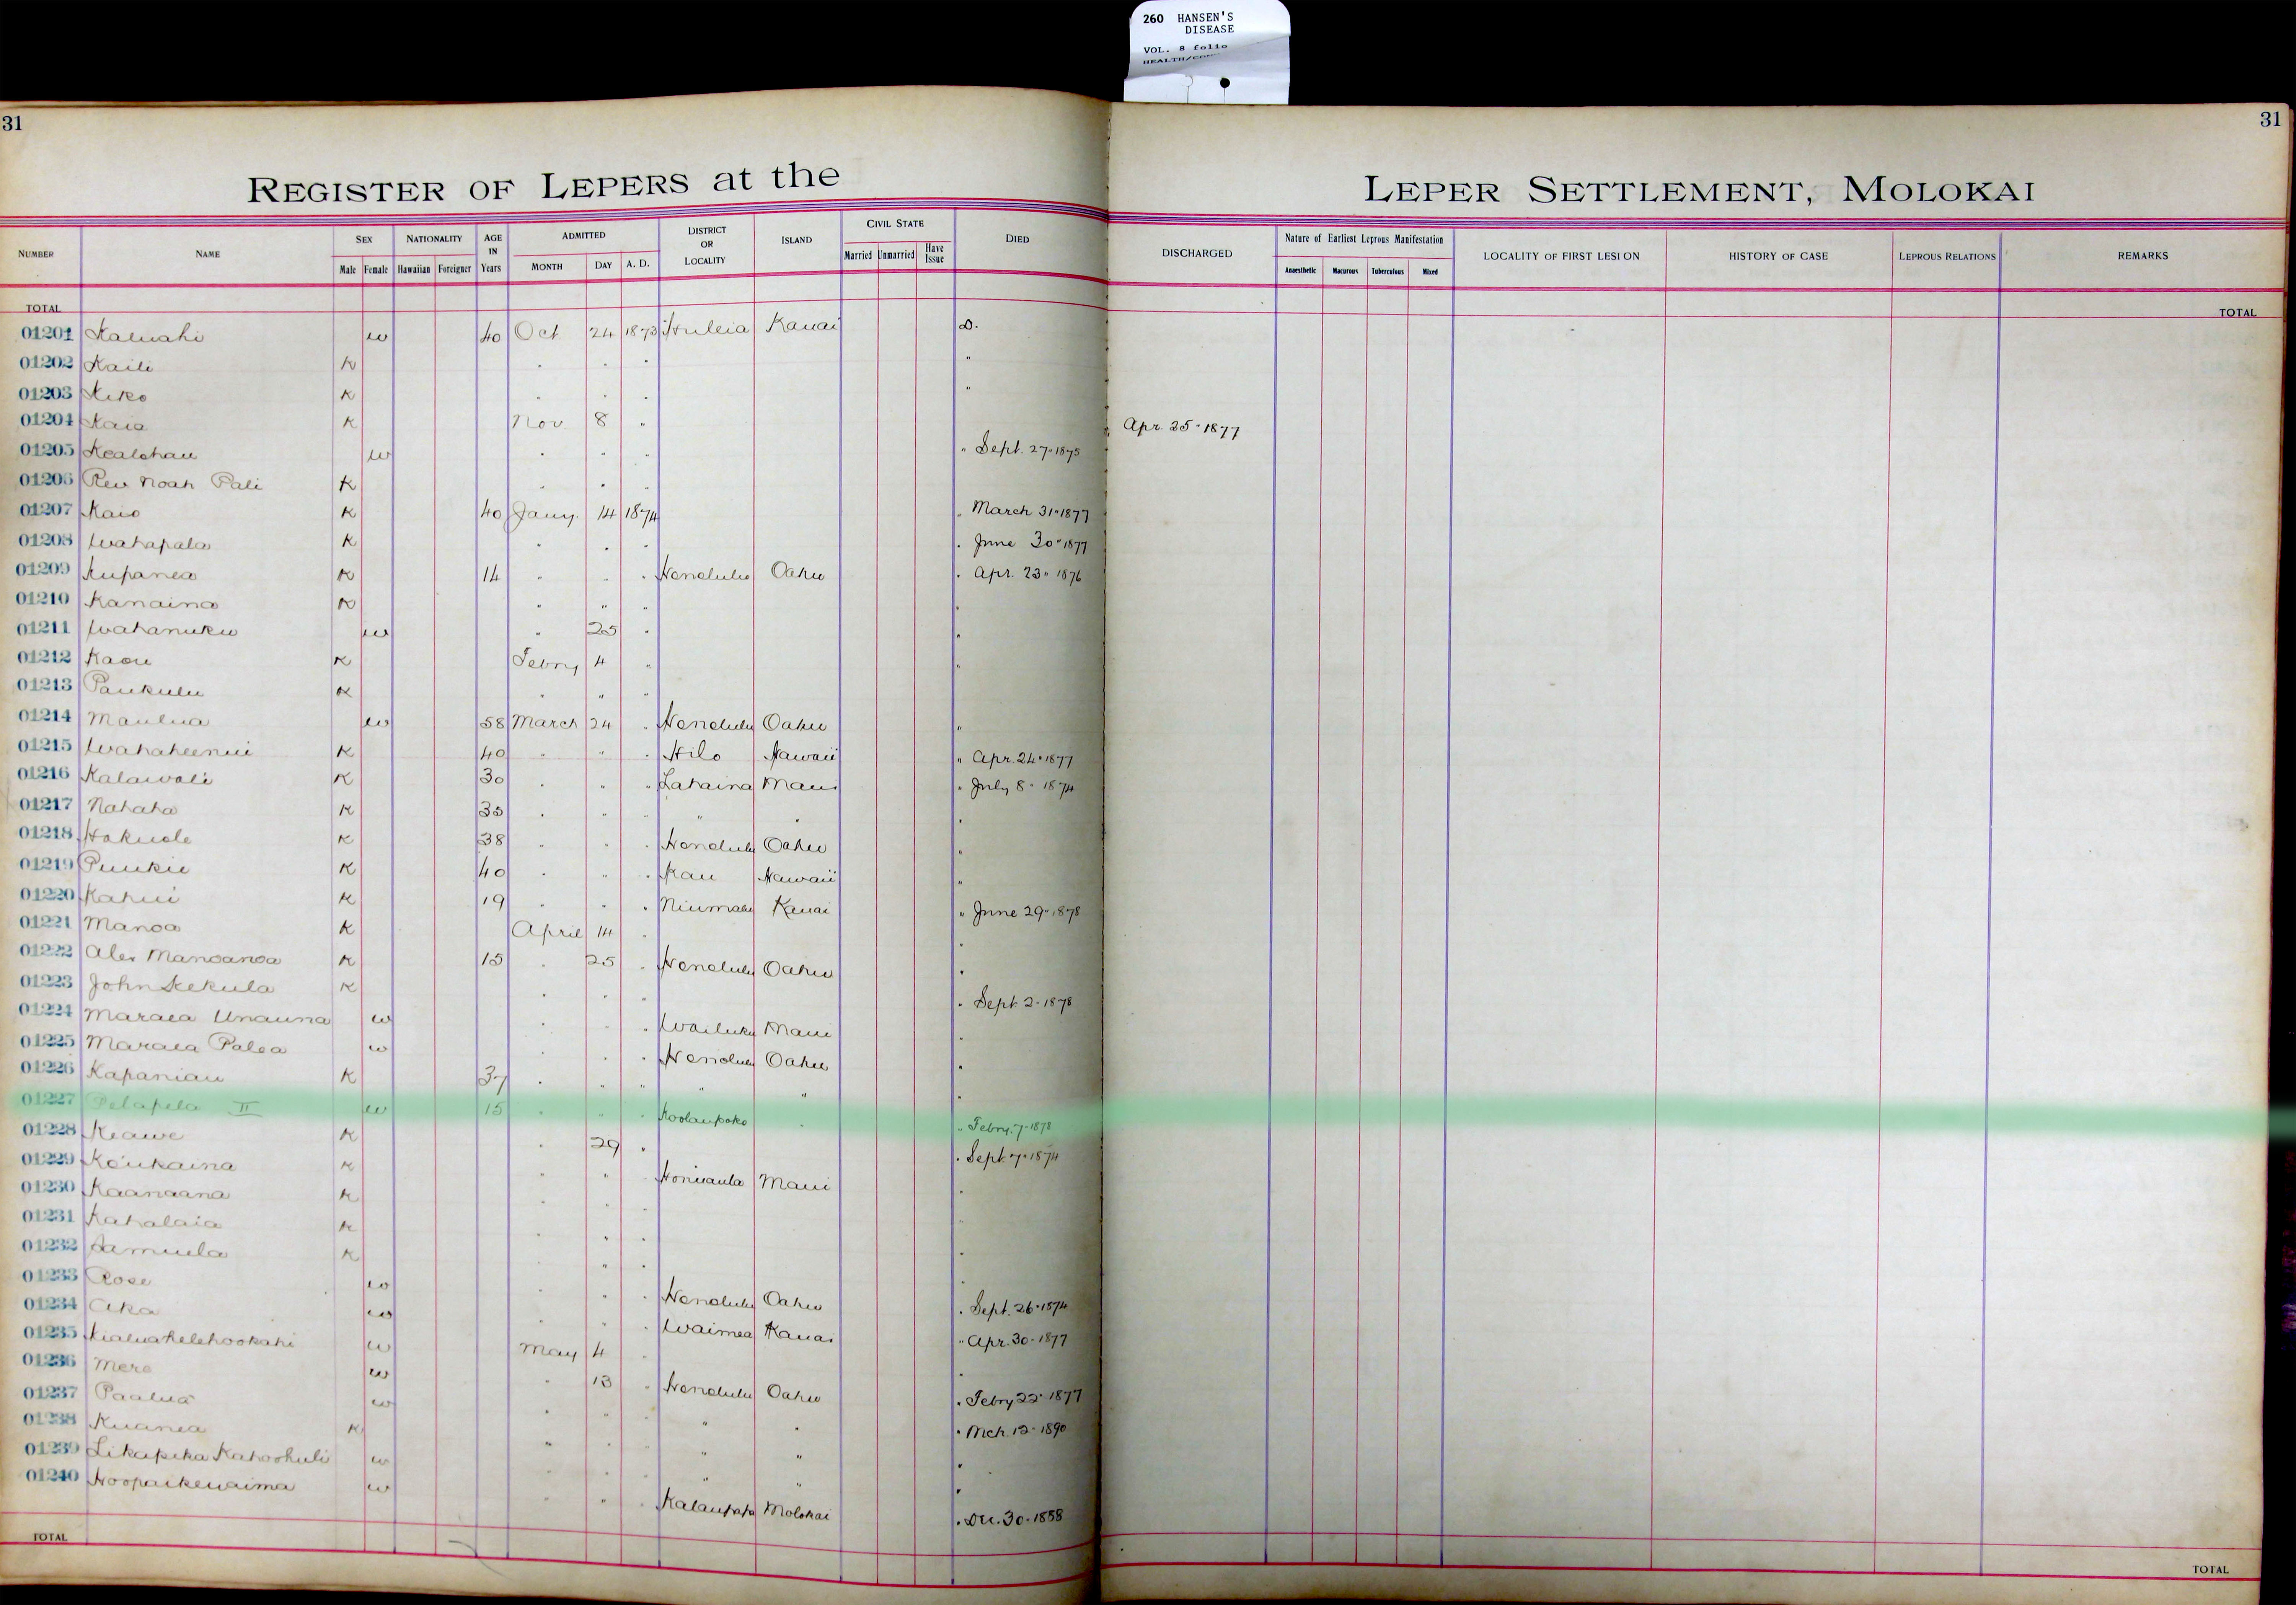 260 HANSEN'S
DISEASE
VOL. 8 folio
31 31
REGISTER OF LEPERS at the LEPER SETTLEMENT, MOLOKAI
NUMBER NAME SEX Male Female NATIONALITY Hawaiian Foreigner AGE IN Years ADMITTED MONTH DAY A. D. DISTRICT OR LOCALITY ISLAND CIVIL STATE Married Unmarried Have Issue DIED DISCHARGED Nature of Earliest Leprous Manifestation Anaesthetic Macurous Tuberculous Mixed LOCALITY OF FIRST LESION HISTORY OF CASE LEPROUS RELATIONS REMARKS
TOTAL TOTAL
01201 Kaluahi w 40 Oct 24 1873 Huleia Kauai D.
01202 Kaili K " " " "
01203 Kiko K " " " "
01204 Kaia K Nov. 8 " " Apr. 25" 1877
01205 Kealohau w " " " " Sept. 27" 1875
01206 Rev Noah Pali K " " "
01207 Kaio K 40 Jany. 14 1874 " March 31" 1877
01208 Wahapala K " " " " June 30" 1877
01209 Kupanea K 14 " " " Honolulu Oahu " Apr. 23" 1876
01210 Kanaina K " " " "
01211 Wahanuku w " 25 " "
01212 Kaou K Febry 4 " "
01213 Paukulu K " " "
01214 Maulua w 58 March 24 " Honolulu Oahu "
01215 Wahaheenui K 40 " " " Hilo Hawaii " Apr. 24" 1877
01216 Kalawali K 30 " " " Lahaina Maui " July 8" 1874
01217 Nahaha K 35 " " " " " "
01218 Hokuole K 38 " " " Honolulu Oahu "
01219 Puukie K 40 " " " Kau Hawaii "
01220 Kahui K 19 " " " Niumalu Kauai " June 29" 1878
01221 Manoa K April 14 " "
01222 Alex Manoanoa K 15 " 25 " Honolulu Oahu "
01223 John Kekula K " " " " Sept. 2" 1878
01224 Maraea Unauna w " " " Wailuku Maui "
01225 Maraea Palea w " " " Honolulu Oahu "
01226 Kapaniau K 37 " " " " " "
01227 Pelapela II w 15 " " " Koolaupoko " " Febry. 7" 1878
01228 Keawe K " 29 " " Sept. 7" 1874
01229 Koukaina K " " " Honuaula Maui "
01230 Kaanaana K " " "
01231 Kahalaia K " " " "
01232 Samuela K " " "
01233 Rose w " " " Honolulu Oahu " Sept. 26" 1874
01234 Aka w " " " Waimea Kauai " Apr. 30" 1877
01235 Kialuahelehookahi w May 4 " "
01236 Mere w " 13 " Honolulu Oahu " Febry 22" 1877
01237 Paalua w " " " " " " Mch. 12" 1890
01238 Kuanea K " " " " " "
01239 Likapeka Kahoohuli w " " " " " "
01240 Hoopaikewaima w " " " Kalaupapa Molokai " Dec. 30" 1888
TOTAL TOTAL